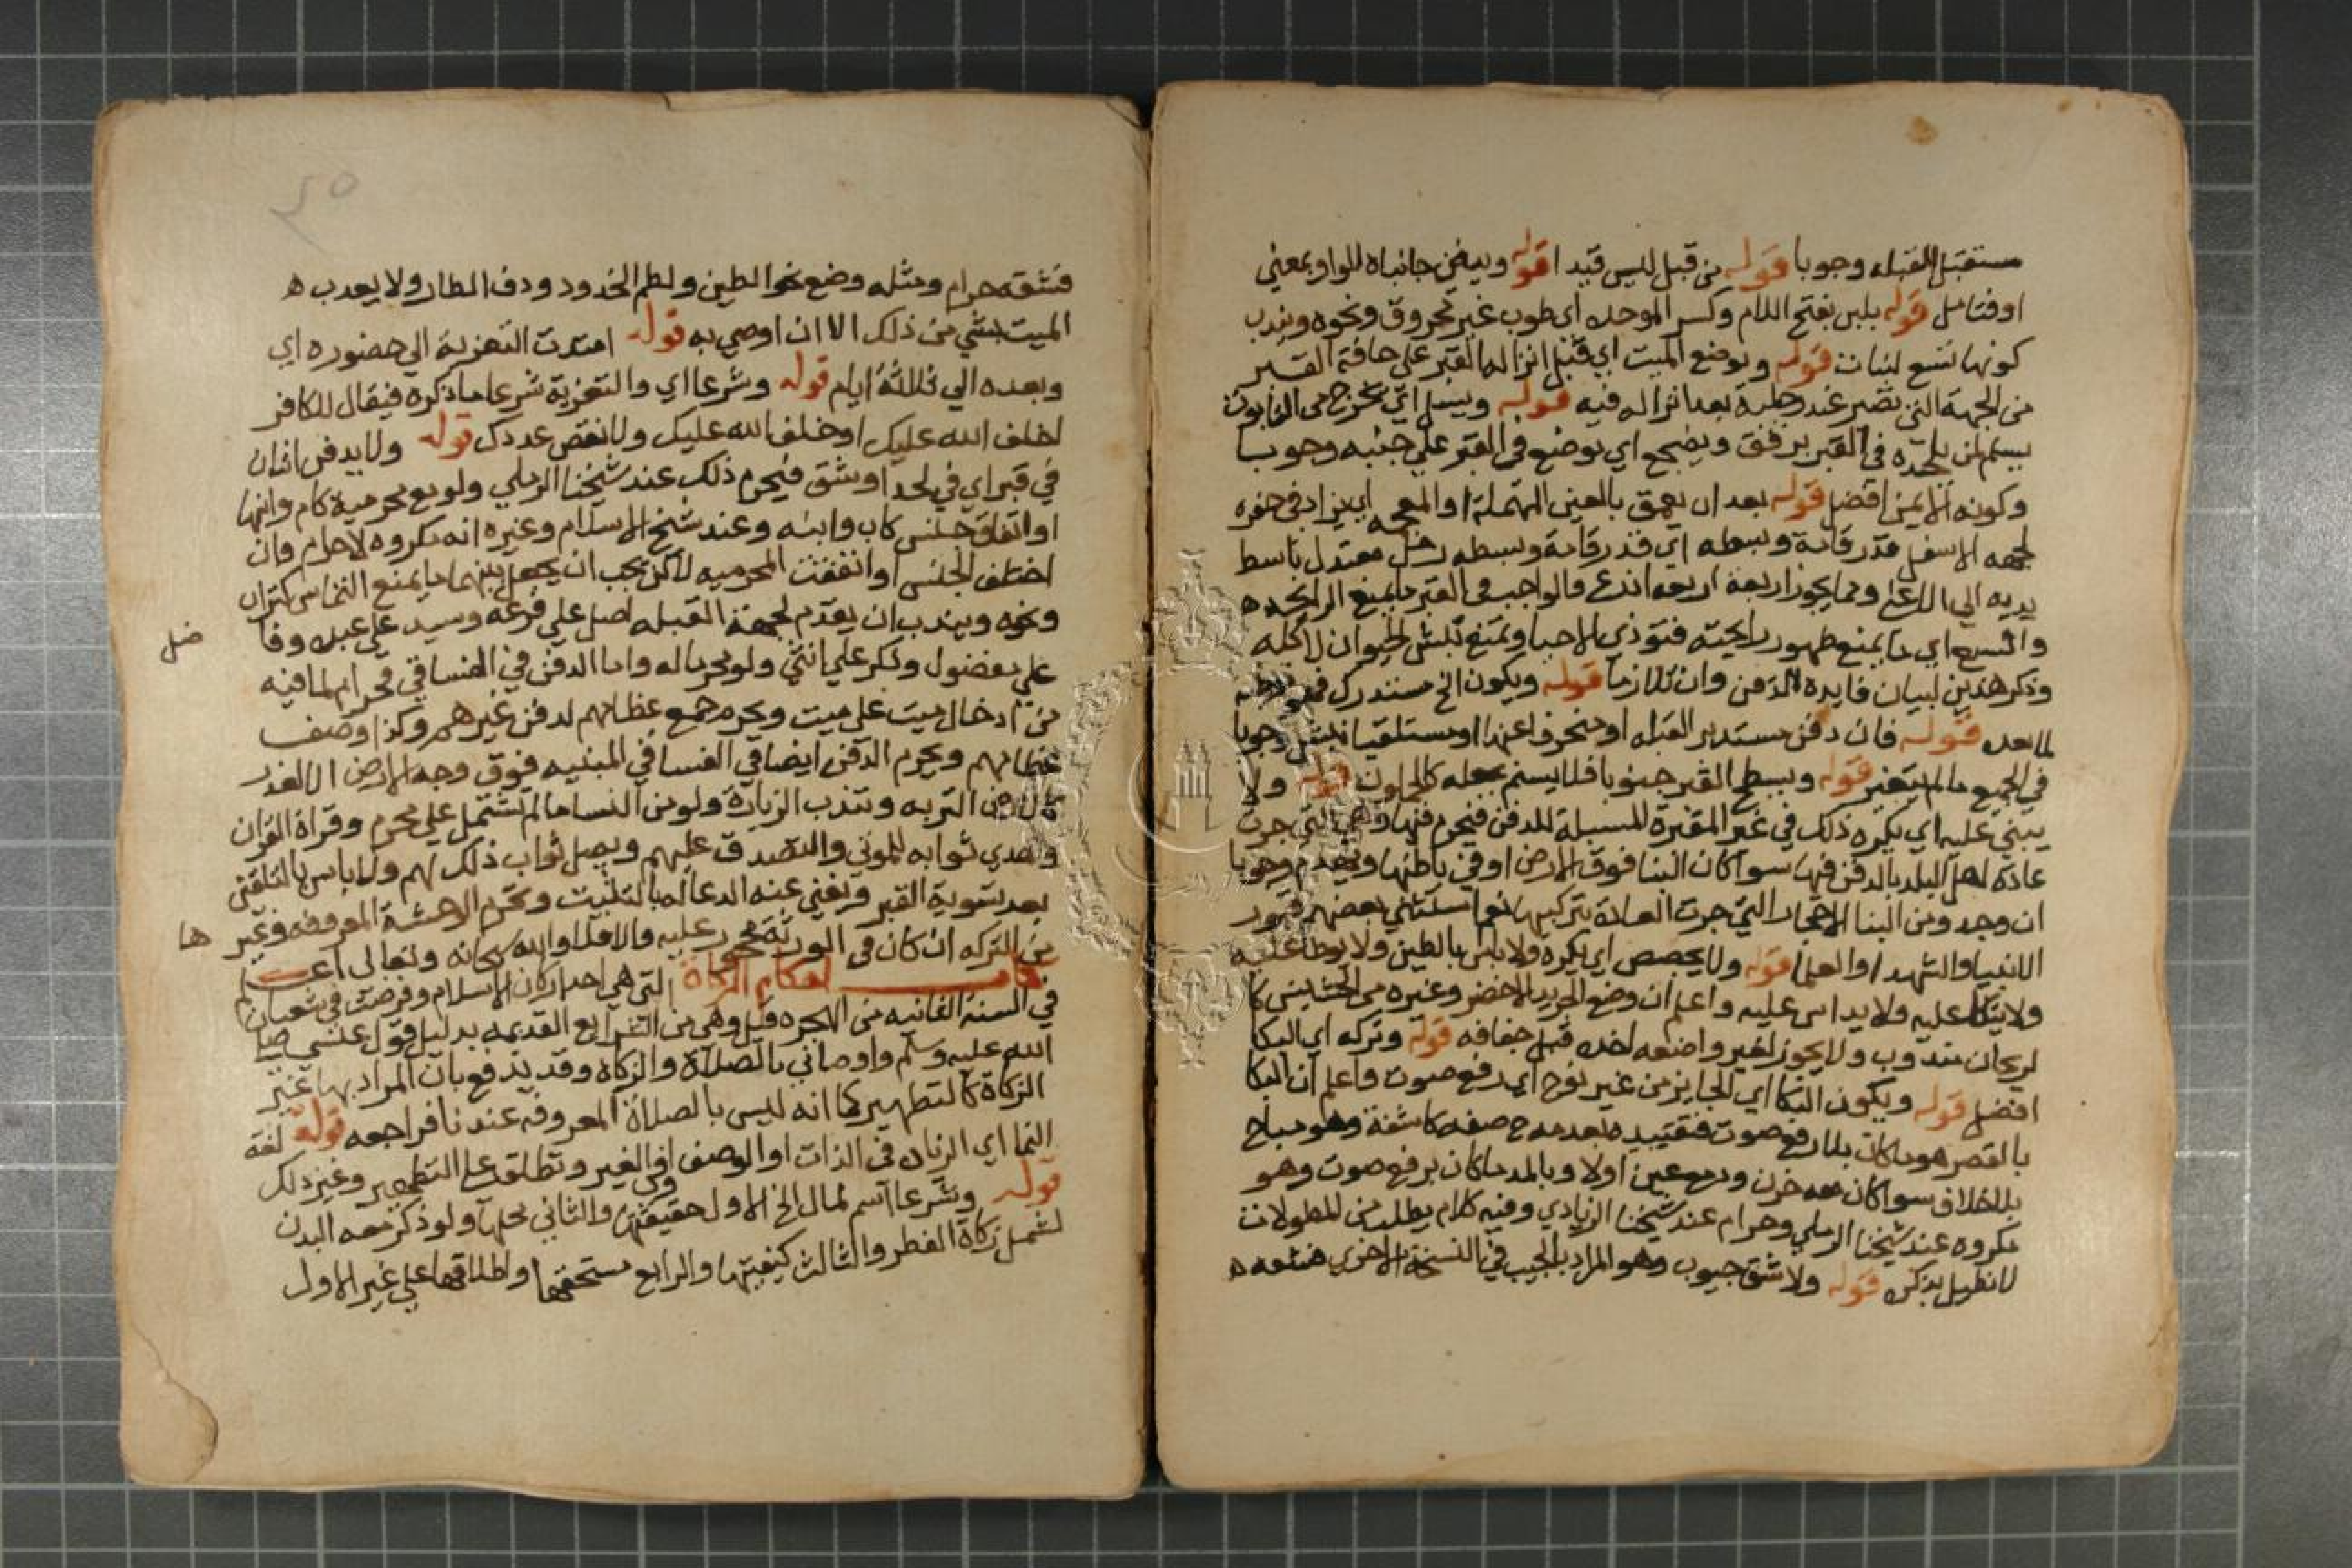 مستقبل القبله وجوبا قوله من قبل ليس قيدا قوله ويبني جانباه للواو بمعني
او فتامل قوله بلبن بفتح اللام وكسر الموحده اي طوب غير محروق ونحوه ويندب
كونها تسع لبنات قوله ويوضع الميت اي قبل انزاله القبر علي حافة القبر
من الجهة التي تصير عند رجليه بعد انزاله فيه قوله ويسل اي يخرج من التابوت
يسلم لمن يلحده في القبر برفق ويضجع اي يوضع في القبر علي جنبه وجوبا
وكونه الايمن افضل قوله بعد ان يعمق بالعين المهملة او المعجمه اي يزاد في حفره
لجهه الاسفل قدر قامة وبسطه اي قدر قامة وبسطه رجل معتدل باسط
يديه الي الاعلا وهما يجوز اربعة اربعه اذرع فالواجب في القبر ما يمنع الرايحه ه
والسبع اي ما يمنع ظهور رايحته فتوذي الاحيا ويمنع نبش الحيوان لاكله
وذكر هذين لبيان فايدة الدفن وان تلازما قوله ويكون الخ مستدرك فهو توطيه
لما بعده قوله فان دفن مستدبر القبله او منحرفا عنها او مستلقيا نبش وجوبا
في الجميع ما لم يتغير قوله ويسطح القبر جنوبا فلا يسنم بجعله كالجملون قوله ولا
يبني عليه اي يكره ذلك في غير المقبرة المسبلة للدفن فيحرم فيها وهي التي جرت
عادة اهل البلد بالدفن فيها سوا كان البنا فوق الارض او في باطنها ويهدم وجوبا
ان وجد ومن البنا الاحجار التي جرت العادة بتركيبها نعم استثني بعضهم قبور
الانبيا والشهدا والعلما قوله ولا يجصص اي يكره ولا باس بالطين ولا يوطا عليه
ولا يتكا عليه ولا يداس عليه واعلم ان وضع الجريد الاخضر وغيره من الحشيش كا
لريحان مندوب ولا يجوز لغير واضعه اخذه قبل جفافه قوله وتركه اي البكا
افضل قوله ويكون البكا اي الجايز من غير نوح اي رفع صوت واعلم ان البكا
بالقصر هو ما كان بلا رفع صوت فتقييده بعدمه ح صفه كاشفة وهو مباح
بلا خلاف سوا كان معه حزن ودمع عين او لا وبالمد ما كان برفع صوت وهو
مكروه عند شيخنا الرملي وحرام عند شيخنا الزيادي وفيه كلام يطلب من المطولات
لا نطيل بذكره قوله ولا شق جيوب وهو المراد بالجيب في النسخة الاخري
فشقه حرام ومثله وضع نحو الطين ولطم الخدود ودف الطار ولا يعدب ه
الميت بشي من ذلك الا ان اوصي به قوله امتدت التعزية الي حضوره اي
وبعده الي ثلاثة ايام قوله وشرعا اي والتعزية شرعا ما ذكره فيقال للكافر
اخلف الله عليك او خلف الله عليك ولا نقص عددك قوله ولا يدفن اثنان
في قبر اي في لحد او شق فيحرم ذلك عند شيخنا الرملي ولو مع محرمية كام وابنها
او اتفاق جنس كاب وابنه وعند شيخ الاسلام وغيره انه مكروه لا حرام وان
اختلف الجنس او انتفت المحرميه لاكن يجب ان يجعل بينهما ما يمنع التماس كتراب
ونحوه ويندب ان يقدم لجهة القبله اصل علي فرعه وسيد علي عبده وفا
ضل
علي مفضول وذكر علي انثي ولو محرما له واما الدفن في الفساقي فحرام لما فيه
من ادخال ميت علي ميت ويحرم جمع عظامهم لدفن غيرهم وكذا وصف
عظامهم ويحرم الدفن ايضا في الفساقي المبنيه فوق وجه الارض الا لعذر
كان من التربه وتندب الزيارة ولو من النسا ما لم تشتمل علي محرم وقراة القران
وتهدي ثوابه للموتي والتصدق عليهم ويصل ثواب ذلك لهم ولا باس بالتلقين
بعد تسوية القبر ويغني عنه الدعا له بالتثبيت وتحرم الوحشة المعروفه وغير
ها
من التركه ان كان في الورثه محجور عليه والا فلا والله سبحانه وتعالى اعلم
كتاب احكام الزكاة التي هي احد اركان الاسلام وفرضت في شعبان
في السنة الثانيه من الهجره قيل وهي من الشرايع القديمه بدليل قول عيسي صلي
الله عليه وسلم واوصاني بالصلاة والزكاة وقد يدفع بان المراد بها غير
الزكاة كالتطهير كما انه ليس بالصلاة المعروفه عندنا فراجعه قوله لغة
النما اي الزياده في الذات او الوصف او الغير وتطلق على التطهير وغير ذلك
قوله وشرعا اسم لمال الخ الاول حقيقتها والثاني محلها ولو ذكر معه البدن
لشمل زكاة الفطر والثالث كيفيتها والرابع مستحقها واطلاقها علي غير الاول